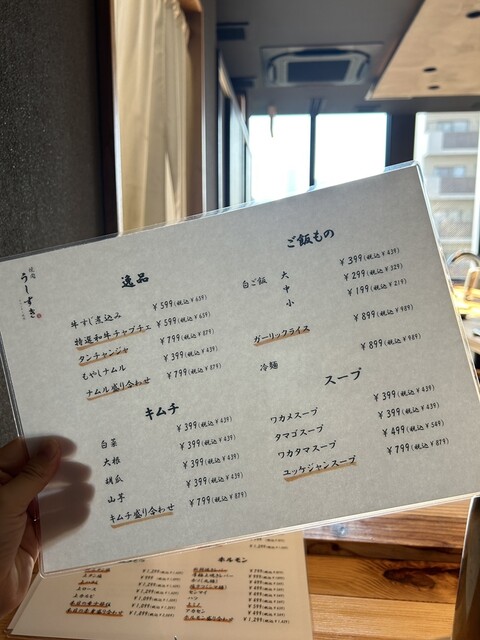 焼肉
うしすき
逸品
牛すじ煮込み ¥599(税込¥659)
特選和牛チャプチェ ¥599(税込¥659)
タンチャンジャ ¥799(税込¥879)
もやしナムル ¥399(税込¥439)
ナムル盛り合わせ ¥799(税込¥879)
キムチ
白菜 ¥399(税込¥439)
大根 ¥399(税込¥439)
胡瓜 ¥399(税込¥439)
山芋 ¥399(税込¥439)
キムチ盛り合わせ ¥799(税込¥879)
ご飯もの
白ご飯 大 ¥399(税込¥439)
中 ¥299(税込¥329)
小 ¥199(税込¥219)
ガーリックライス ¥899(税込¥989)
冷麺 ¥899(税込¥989)
スープ
ワカメスープ ¥399(税込¥439)
タマゴスープ ¥399(税込¥439)
ワカタマスープ ¥499(税込¥549)
ユッケジャンスープ ¥799(税込¥879)
ホルモン
上ロース
上カルビ
センマイ
ハツ
アカセン
ホルモン盛り合わせ